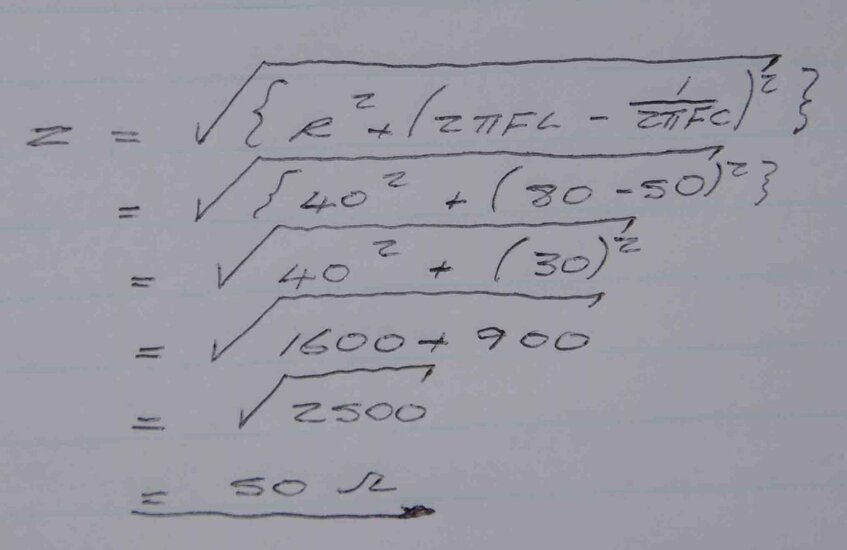 Z = √{R² + (2πFL - 1/2πFC)²}
= √{40² + (80 - 50)²}
= √40² + (30)²
= √1600 + 900
= √2500
= 50 Ω